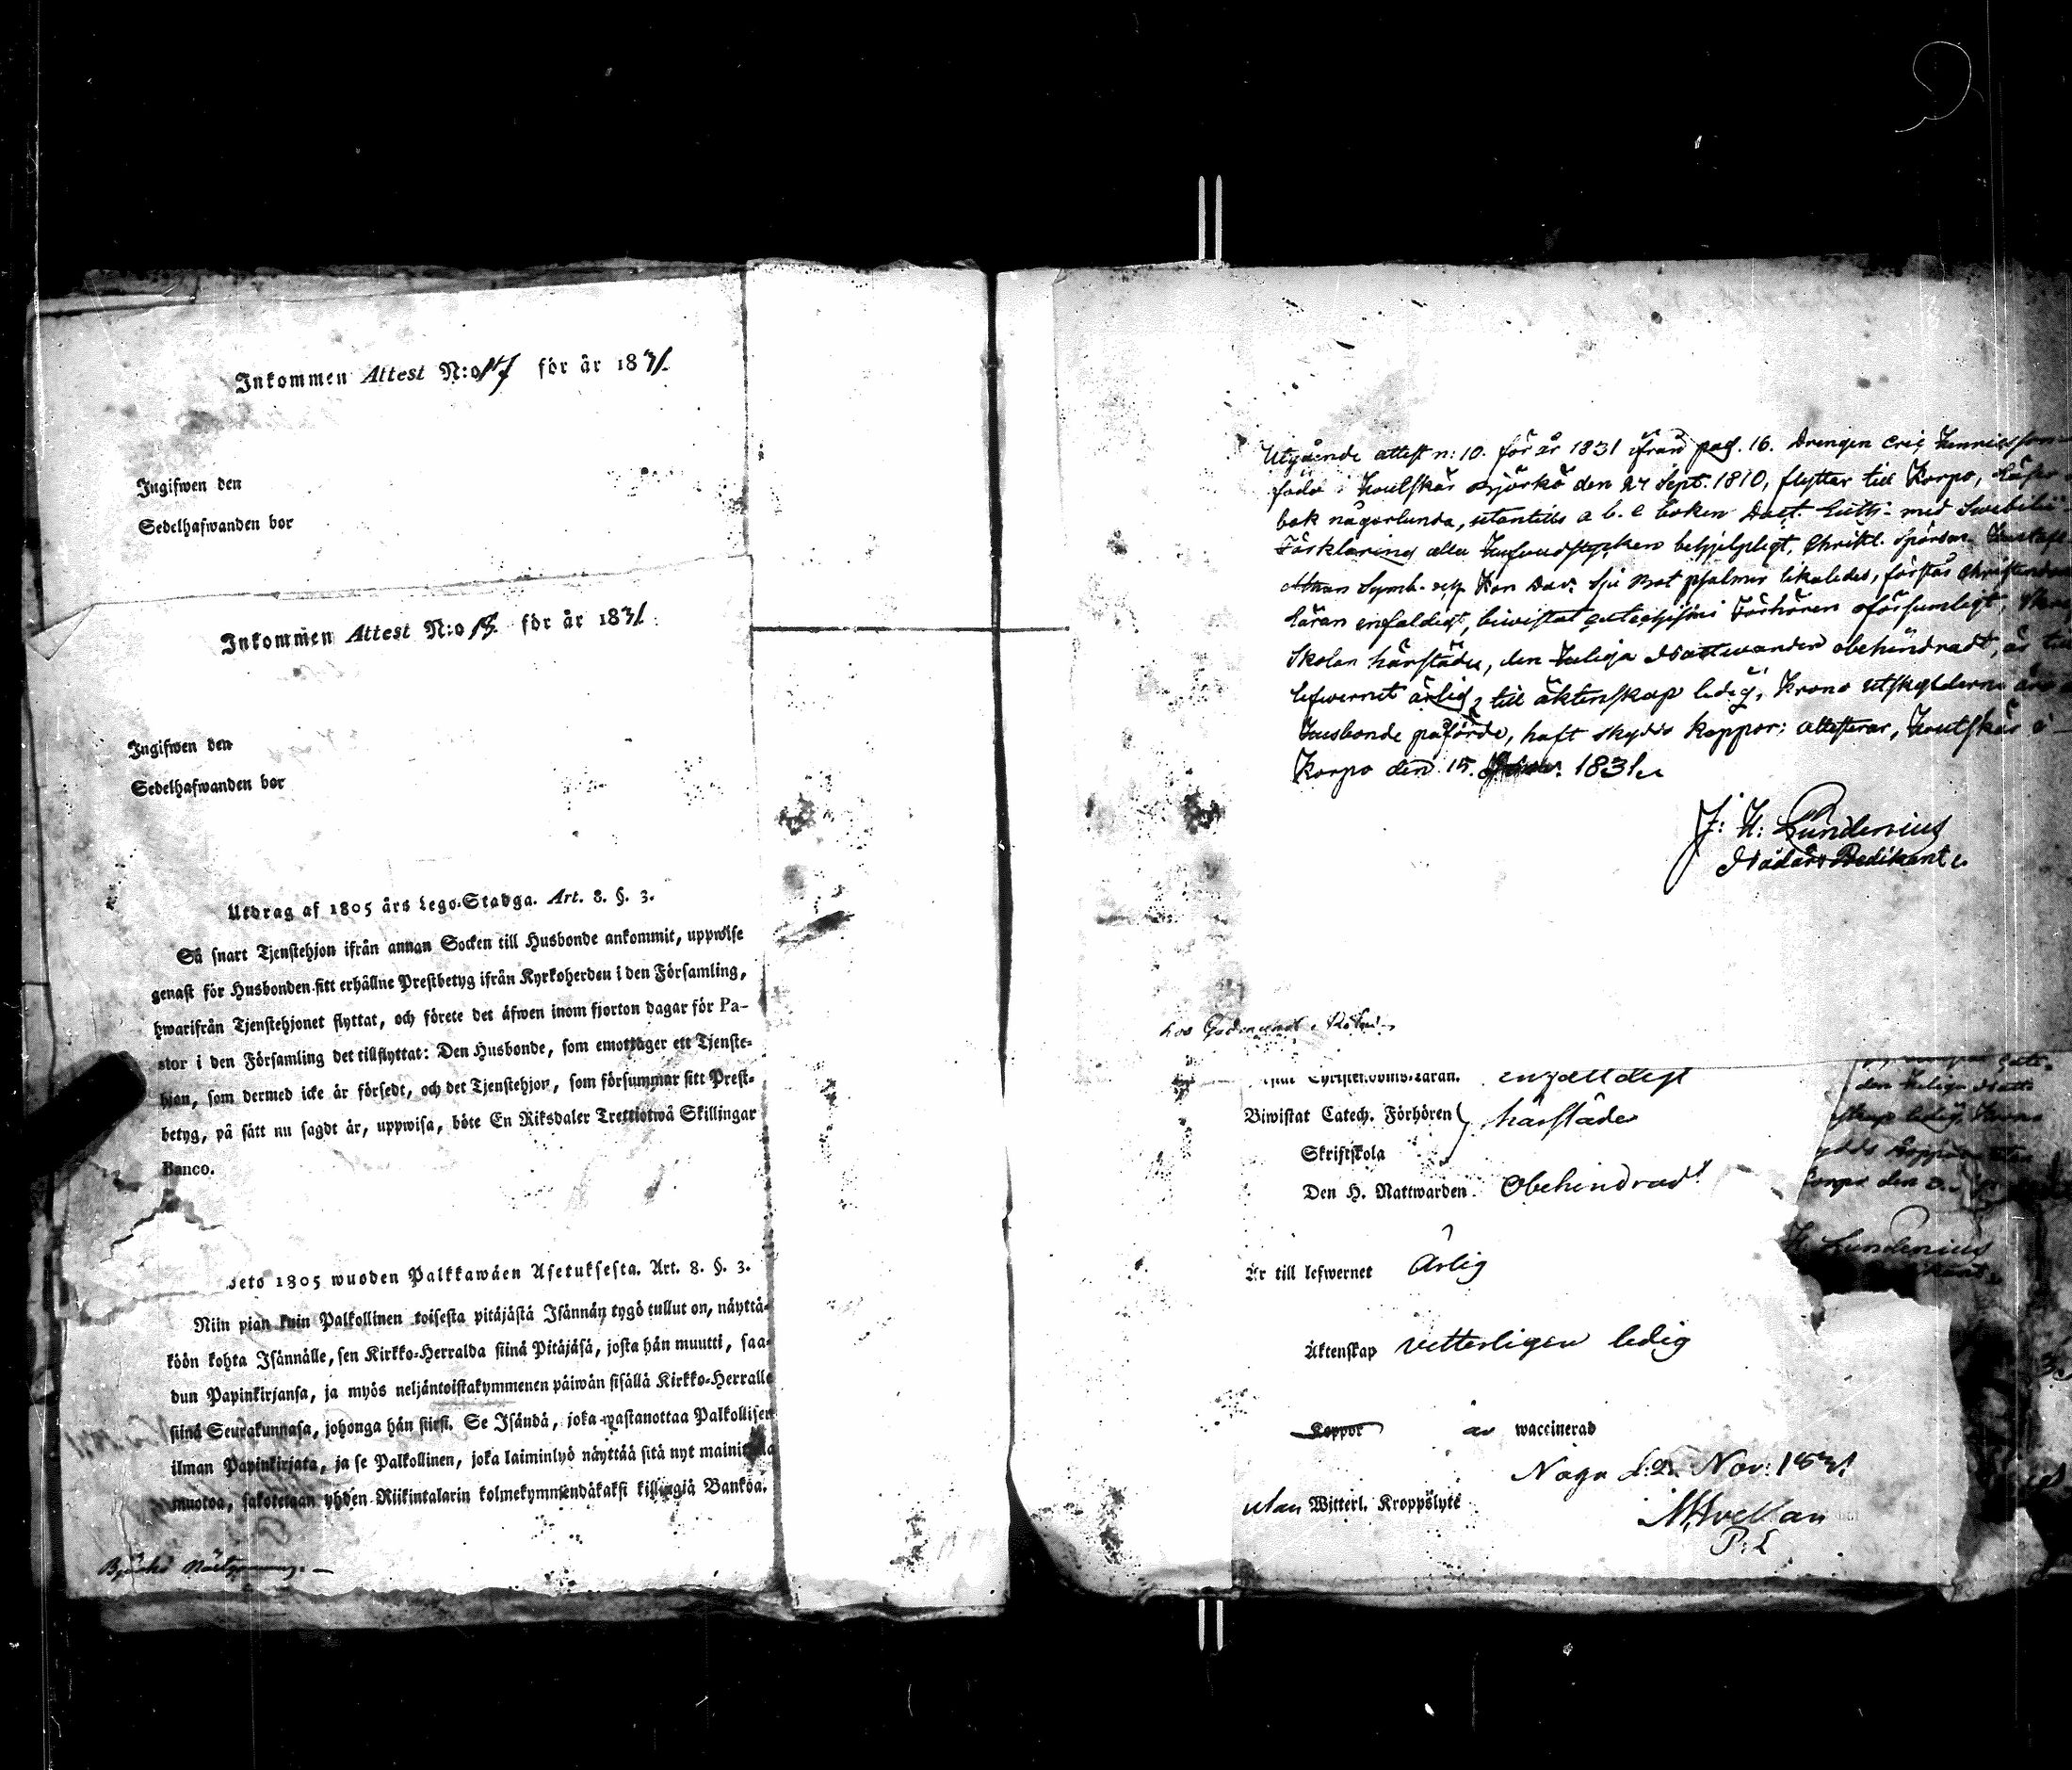 Inkommen Attest N:o 17 för år 1831.
Ingifwen den
Sedelhafwanden bor
Inkommen Attest N:o 18. för år 1831.
Ingifwen den
Sedelhafwanden bor
Utdrag af 1805 års Lego-Stadga. Art. 8. §. 3.
Så snart Tjenstehjon ifrån annan Socken till Husbonde ankommit, uppwise
genast för Husbonden sitt erhållne Prestbetyg ifrån Kyrkoherden i den Församling,
hwarifrån Tjenstehjonet flyttat, och förete det äfwen inom fjorton dagar för Pa-
stor i den Församling det tillflyttat: Den Husbonde, som emottager ett Tjenste-
hjon, som dermed icke är försedt, och det Tjenstehjon, som försummar sitt Prest-
betyg, på sätt nu sagdt är, uppwisa, böte En Riksdaler Trettiotwå Skillingar
Banco.
1805 wuoden Palkkawäen Asetuksesta. Art. 8. §. 3.
Niin pian kuin Palkollinen toisesta pitäjästä Isännän tygö tullut on, näyttä-
köön kohta Isännälle, sen Kirkko-Herralda siinä Pitäjäsä, josta hän muutti, saa-
dun Papinkirjansa, ja myös neljäntoistakymmenen päiwän sisällä Kirkko-Herralle
siinä Seurakunnasa, johonga hän siirsi. Se Isändä, joka wastanottaa Palkollisen
ilman Papinkirjata, ja se Palkollinen, joka laiminlyö näyttää sitä nyt mainitulla
muotoa, sakotetaan yhden Riikintalarin kolmekymmendäkaksi killingiä Bankoa.
Björkö
Utgående attest n: 10. för år 1831 ifrån pag. 16. Drengen Eric Henricsson
född i Houtskär Björkö den 24 Sept. 1810, flyttar till Korpo, läser i
bok någorlunda, utantills a. b. c boken Doct. Luth: med Swebilii
Förklaring alla hufvudstycken behjelpligt, Christl. Spörsm. Hustafl.
Athan Symb. Dav. sju Bot psalmer likaledes, förstår Christendoms
läran enfaldigt, biwistat catechismi Förhören oförsumligt,
Skolan härstädes, den Heliga Nattwarden obehindradt, är till
lefwernet ärlig, till äktenskap ledig, Krono utskylderne äro
Husbonde påförde, haft skydds koppor: attesterar, Houtskär i
Korpo den 15. 1831.
J: H: Lundenius
Nådårs Predikant.
hos
Christendoms-Läran. enfalldigt
Biwistat Catech. Förhören härstädes
Skriftskola
Den H. Nattwarden Obehindrad
Är till lefwernet Ärlig
Äktenskap vetterligen ledig
Koppor är waccinerad
Nagu d: Nov: 1831
utan Witterl. Kroppslyte
P: L
den Heliga Natt
skap ledig, Krono
ydds koppor
Korpo den
H: Lundenius